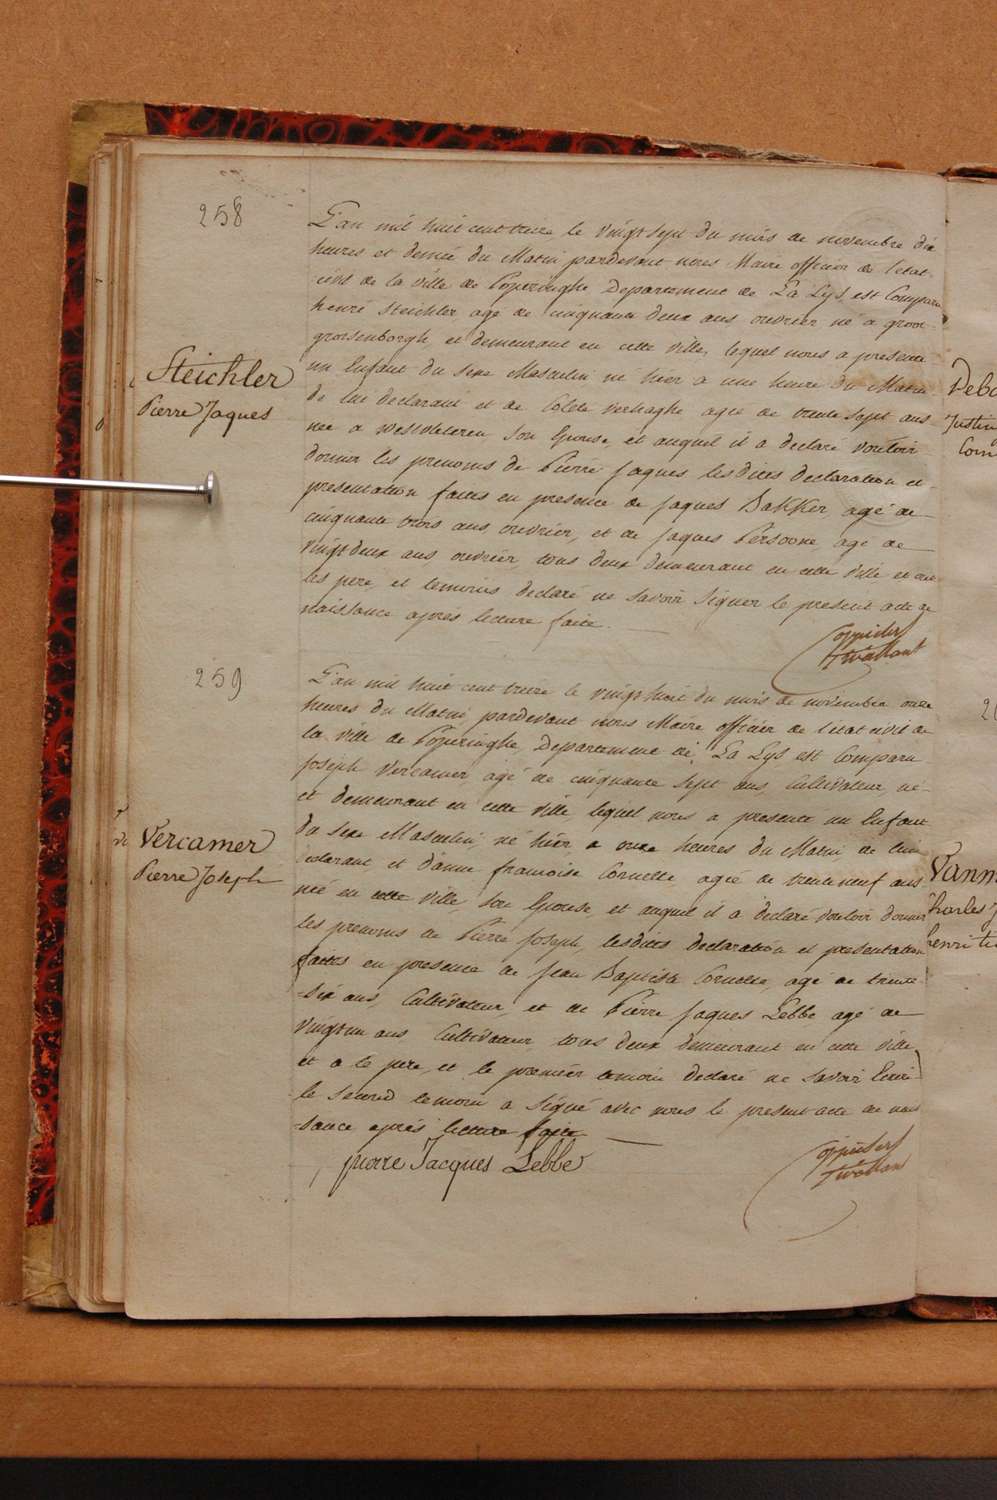 258
Steichler
Pierre Jaques
L'an mil huit cent treize le vingt sept du mois de novembre dix
heures et demie du Matin pardevant nous Maire officier de l'etat
civil de la ville de Poperinghe Departement de La Lys, est Comparu
henri Steichler, agé de cinquante deux ans ouvrier né a
et demeurant en cette ville, lequel nous a presenté
un Enfant du sexe Masculin né hier a une heure du Matin
de lui declarant et de Colete verhaghe agée de trente sept ans
née a westvleteren son Epouse, et auquel il a declaré vouloir
donner les prenoms de Pierre Jaques lesdites declaration et
presentation faites en presence de Jaques Bakker agé de
cinquante trois ans ouvrier, et de Jaques Persoone agé de
vingt deux ans ouvrier, tous deux demeurant en cette ville et ont
les pere, et temoins declaré ne savoir signer le present acte de
naissance après lecture faite.
259
Vercamer
Pierre Joseph
L'an mil huit cent treize le vingt huit du mois de novembre onze
heures du Matin pardevant nous Maire officier de l'etat civil de
la ville de Poperinghe, Departement de La Lys, est Comparu
Joseph Vercamer, agé de cinquante sept ans, Cultivateur, né
et demeurant en cette ville lequel nous a presenté un Enfant
du sexe Masculin, né hier a onze heures du Matin de lui
declarant, et d'anne francoise Cornette agée de trente neuf ans
née en cette ville, son Epouse, et auquel il a declaré vouloir donner
les prenoms de Pierre Joseph, lesdites declaration et presentation
faites en presence de Jean Baptiste Cornette, agé de trente
-six ans, Cultivateur, et de Pierre Jaques Lebbe agé de
vingt un ans Cultivateur tous deux demeurant en cette ville,
et a le pere, et le premier temoin declaré ne savoir Ecrire
le second temoin a signé avec nous le present acte de nais
-sance après lecture faite
pierre Jacques Lebbe
Justin
Vanm
Charles J
henri